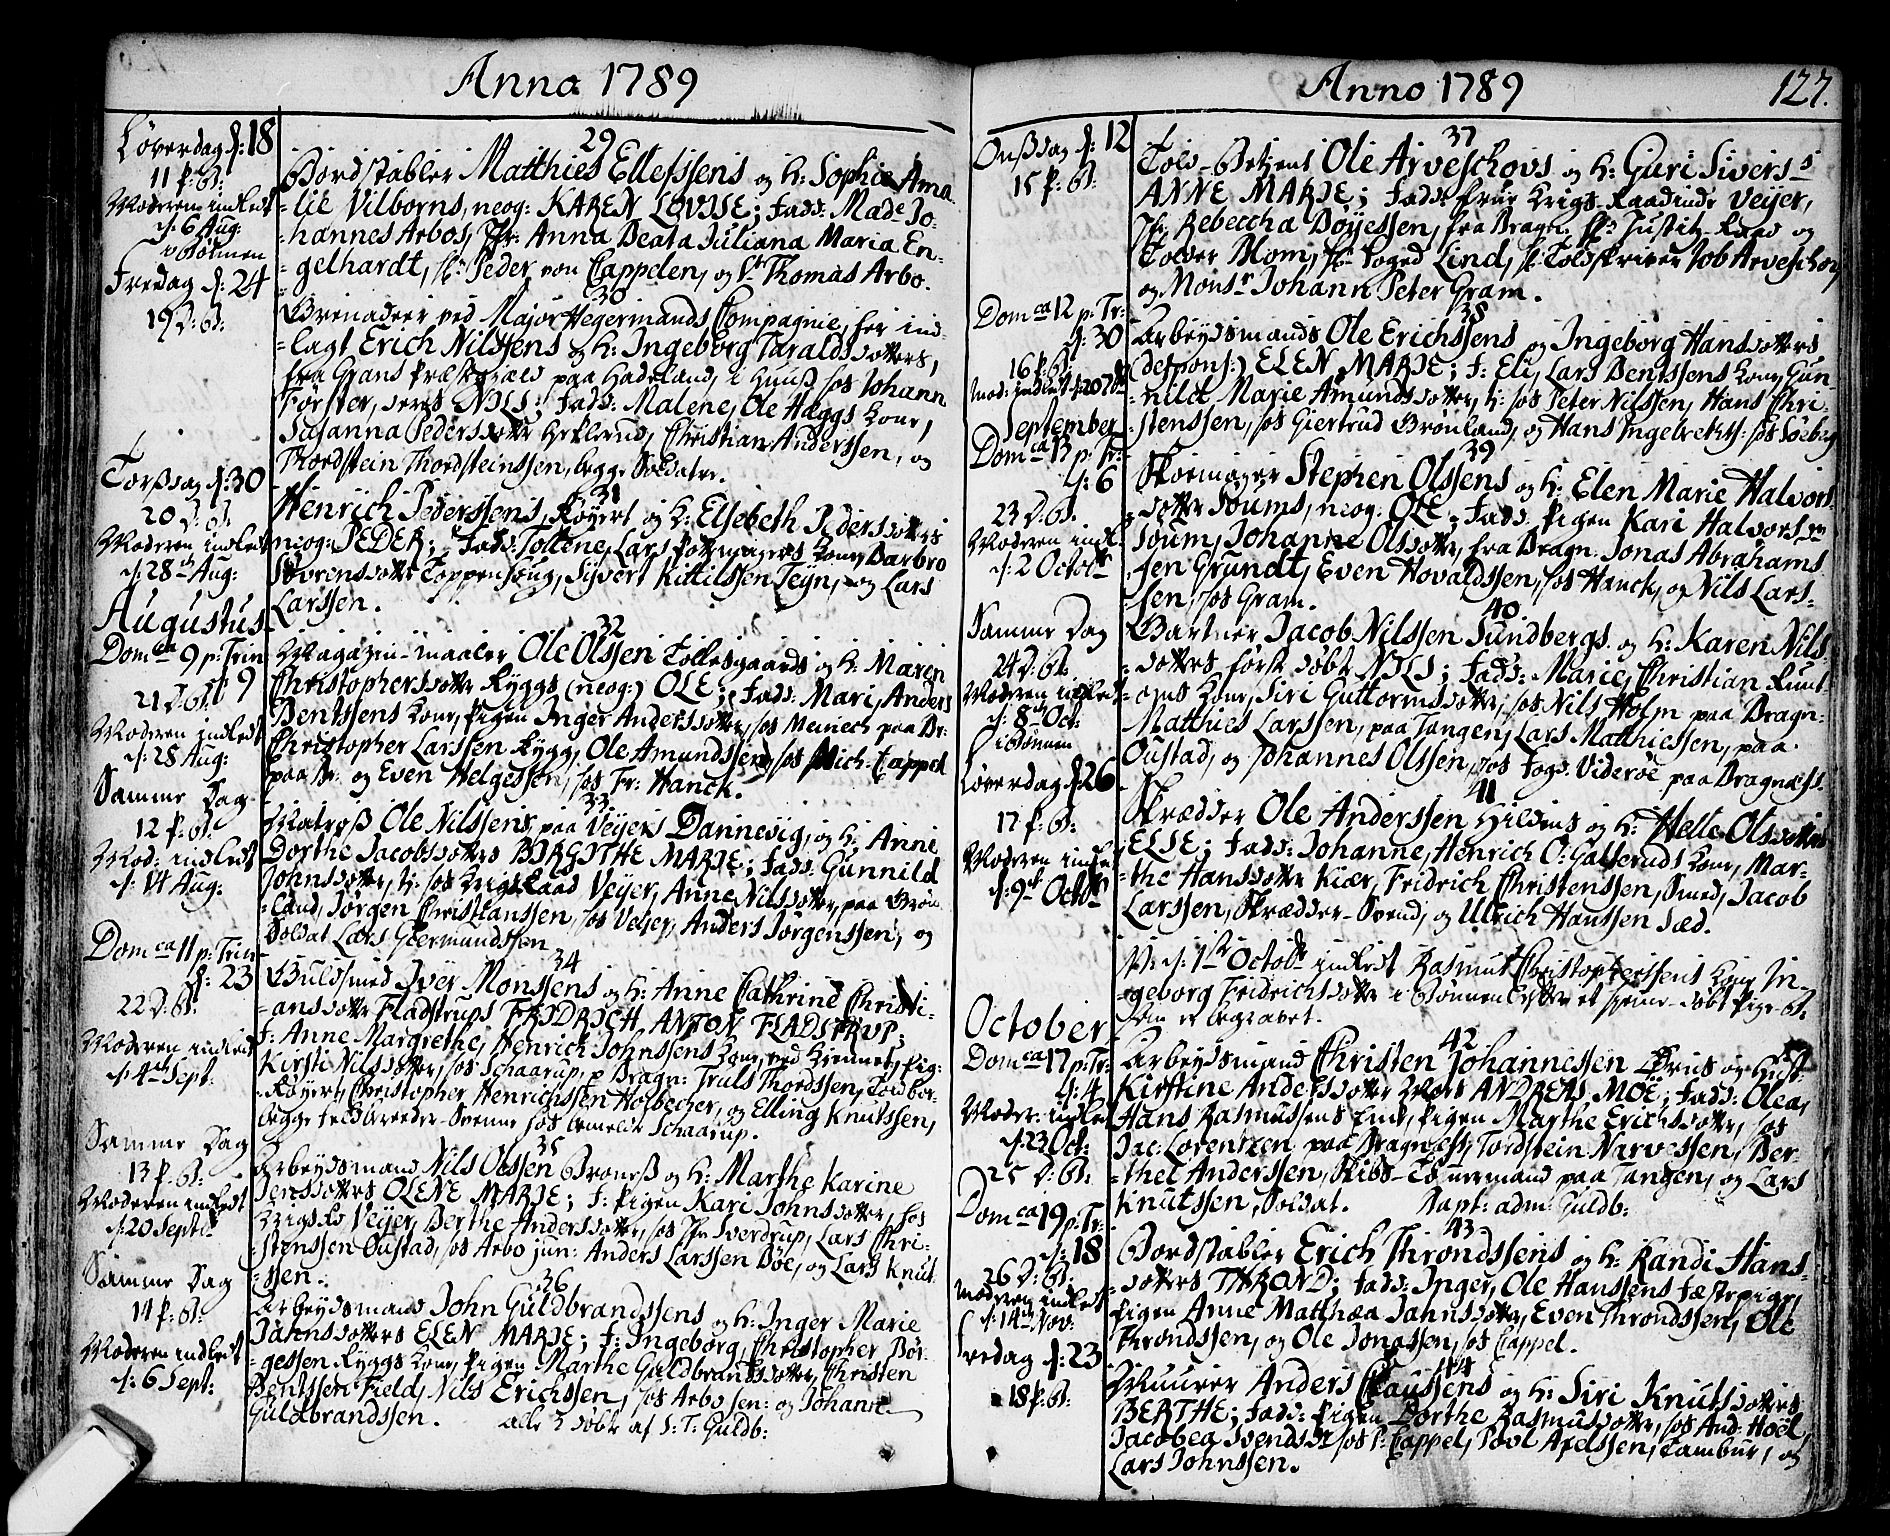 Anno 1789
Løverdag d: 18
11 P: B:
Moderen indledt
d: 6 Aug:
i Bønnen
Fredag d: 24
19 D: B:
Torssdag d: 30
20 D: B:
Moderen indledt
d: 28 Aug:
Augustus
Dom ca 9 p: Trin
d 9
21 D: B:
Moderen indledt
d: 28 Aug:
Samme Dag
12 P: B:
Mod: indledt
d: 14 Aug:
Dom ca 11 p: Trin
d: 23
22 D: B:
Moderen indledt
d: 4 Sept:
Samme Dag
13 P: B:
Moderen indledt
d: 20 Septr
Samme Dag
14 P: B:
Moderen indledt
d: 6 Sept:
29
Bordstabler Matthies Ellefssens og H: Sophie Ama
=lie Vilborns, neog: KAREN LOVISE; Fadd: Made Jo=
=hannes Arbos, Jfr: Anna Beata Juliana Maria En=
=gelhardt, Hr Peder von Cappelen, og Sr Thomas Arbo.
30
Grenadeer ved Major Hegermands Compagnie, her ind=
=lagt Erich Nilssens og H: Ingeborg Taraldsdotters,
fra Grans Præstegield paa Hadeland, i Huus hos Johann
Torster, deres NILS; Fadd: Malene, Ole Hæggs Kone,
Susanna Pedersdotter Heflernd, Christian Anderssen, og
Thordstein Thordsteinssen, begge Soldater.
31
Henrich Pederssens, Røyert og H: Elsebeth Pedersdotters
neog: PEDER; Fadd: Toltene, Lars Pottemagers Kone, Barbro
Sørensdotter Toppenhoug, Syvert Kittilssen Tejn, og Lars
Larssen.
32
Magazin-maaler Ole Olssen Tollesgaards og H: Maren
Christophersdotter Ryggs (neog:) OLE; Fadd: Mari, Anders
Bentssens Kone, Pigen Inger Andersdotter, hos Meinech paa Br:
Christopher Larssen Rygg, Ole Amundssen, hos Mich: Cappel
paa Br: og Even Helgessen, hos Fr: Hanck.
33
Matros Ole Nilssens, paa Vejers Dannevig, og H: Anne
Dorthe Jacobsdotters BIRGITHE MARIE; Fadd: Gunnild
Johnsdotter, H: hos Krigs Raad Vejer, Anne Nilsdotter, paa Grøn
=land, Jørgen Christianssen, hos Vejer, Anders Jørgenssen, og
Soldat Lars Gliermundssen
34
Guldsmed Iver Monssens og H: Anne Cathrine Christi=
=ansdotter Fladstrups FRIDRICH ANTON FLADSTRUP;
F: Anne Margrethe, Henrich Johnssens Kone, ved Kremmer, Pig:
Kirsti Nilsdotter, hos Schaarup, p. Dragn: Truls Thordssen, Toldbor.
Røyert, Christopher Henrichssen Holbecher, og Elling Knutssen,
begge Feldbereder-Svenne hos Cornelie Schaarup.
35
Arbeydsmand Nils Olssen Bronerss og H: Marthe Karine
Jensdotters OLENE MARIE; F: Pigen Kari Johnsdotter, hos
Krigs Rd Vejer, Berthe Andersdotter, hos Jfr Sverdrup, Lars Chri=
=stenssen Oustad, hos Arbo jun: Anders Larssen Bøe, og Lars Knut
=ssen.
36
Arbeydsmand John Guldbrandssens og H: Inger Marie
Jahnsdotters ELEN MARIE; F: Ingeborg, Christopher Bør=
=gessen Ryggs Kone, Pigen Marthe Guldbrandsdotter, Christen
Bentssen Field, Nils Erichssen, hos Arbo sen: og Johann
Guldbrandssen. alle 3 døbt af S: T: Guldb:
Anno 1789 127.
Onssdag d: 12
15 P: B:
Dom ca 12 p: Tr:
d: 30
16 P: B:
Mod: indledt d: 20 7br
September
Dom ca 13 p: Tr:
d: 6
23 D: B:
Moderen indl.
d: 2 Octobr
Samme Dag
24 D: B:
Moderen indledt
d: 8 Oct:
i Bønnen
Løverdag d: 26
17 P: B:
Moderen indledt
d: 9 Octobr
October
Dom ca 17 p: Tr:
d: 4
Moder: indledt
d: 23 Oct:
25 D: B:
Dom ca 19 p: Tr:
d: 18
26 D: B:
Moderen indledt
d: 14 Nov:
Fredag d: 23
18 P: B:
37
Told-Betient Ole Arveschovs og H: Guri Sivers
ANNE MARIE; Fadd: Frue Krigs-Raadinde Vejer,
Jfr. Rebeccha Bøyessen, fra Dragn. Hr Justitz-Raad og
Tolder Blom, Hr Foged Lind, Hr Toldskriver Job Arveschov,
og Monsr Johann Peter Gram.
38
Arbeydsmands Ole Erichssens og Ingeborg Hansdotters
(despons:) ELEN MARIE; F: Eli, Lars Bentssens Kone, Gun=
=nild Marie Amundsdotter, H: hos Peter Nilssen, Hans Chri=
=stenssen, hos Giertrud Grønland, og Hans Ingebretss: hos Søebeg
39
Skoemager Stephen Olssens og H: Elen Marie Halvors
=dotter Soums, neog: OLE; Fadd: Pigen Kari Halvorsdr
Soum, Johanne Olsdotter, fra Dragn: Jonas Abrahams
sen Grundt, Even Hovaldssen, hos Hanck, og Nils Lars=
=sen, hos Gram.
40
Gartner Jacob Nilssen Sundbergs og H: Karen Nils=
=dotters først døbt NILS; Fadd: Marie, Christian Runt
=oms Kone, Siri Guttormsdotter, hos Nils Holm paa Dragn:
Matthies Larssen, paa Tangen, Lars Matthiessen, paa
Oustad, og Johannes Olssen, hos Fogd Viderøe paa Dragness.
41
Skrædder Ole Anderssen Hildens og H: Helle Olsdotters
ELSE; Fadd: Johanne, Henrich O: Galleruds Kone, Mar=
=the Hansdotter Kiær, Fridrich Christenssen, Smed, Jacob
Larssen, Skrædder-Svend, og Ullrich Hanssen Sæd.
NB: d: 1ste Octobr indledt Rasmus Christopherssens Kone In=
=geborg Fridrichsdotter i Bønnen Efter et hiemme-døbt Pige-B:
som er begravet.
42
Arbeydsmand Christen Johannessen Bruus og Hust.
Kirstine Andersdotter Moes ANDREAS MOE; Fadd: Olea,
Hans Rasmussens Enke, Pigen Marthe Erichsdotter, hos
Jac: Lorentzen paa Dragness, Tordstein Narvessen, Ber=
=thel Anderssen, Skibs-Tømmermand paa Tangen, og Lars
Knutssen, Soldat. Bapt: adm: Guldb:
43
Bordstabler Erich Throndssens og H: Randi Hans=
=dotters THROND; Fadd: Inger, Ole Hanssens Festepige,
Pigen Anne Matthæa Jahnsdotter, Even Throndssen, Ole
Throndssen, og Ole Jonassen, hos Cappel.
44
Muurer Anders Claussens og H: Siri Knutsdotters
BERTHE; Fadd: Pigen Dorthe Rasmusdotter, hos And: Hoel,
Jacobea Svendsdr hos P: Cappel, Povl Axelssen, Tambur, og
Lars Johnssen.